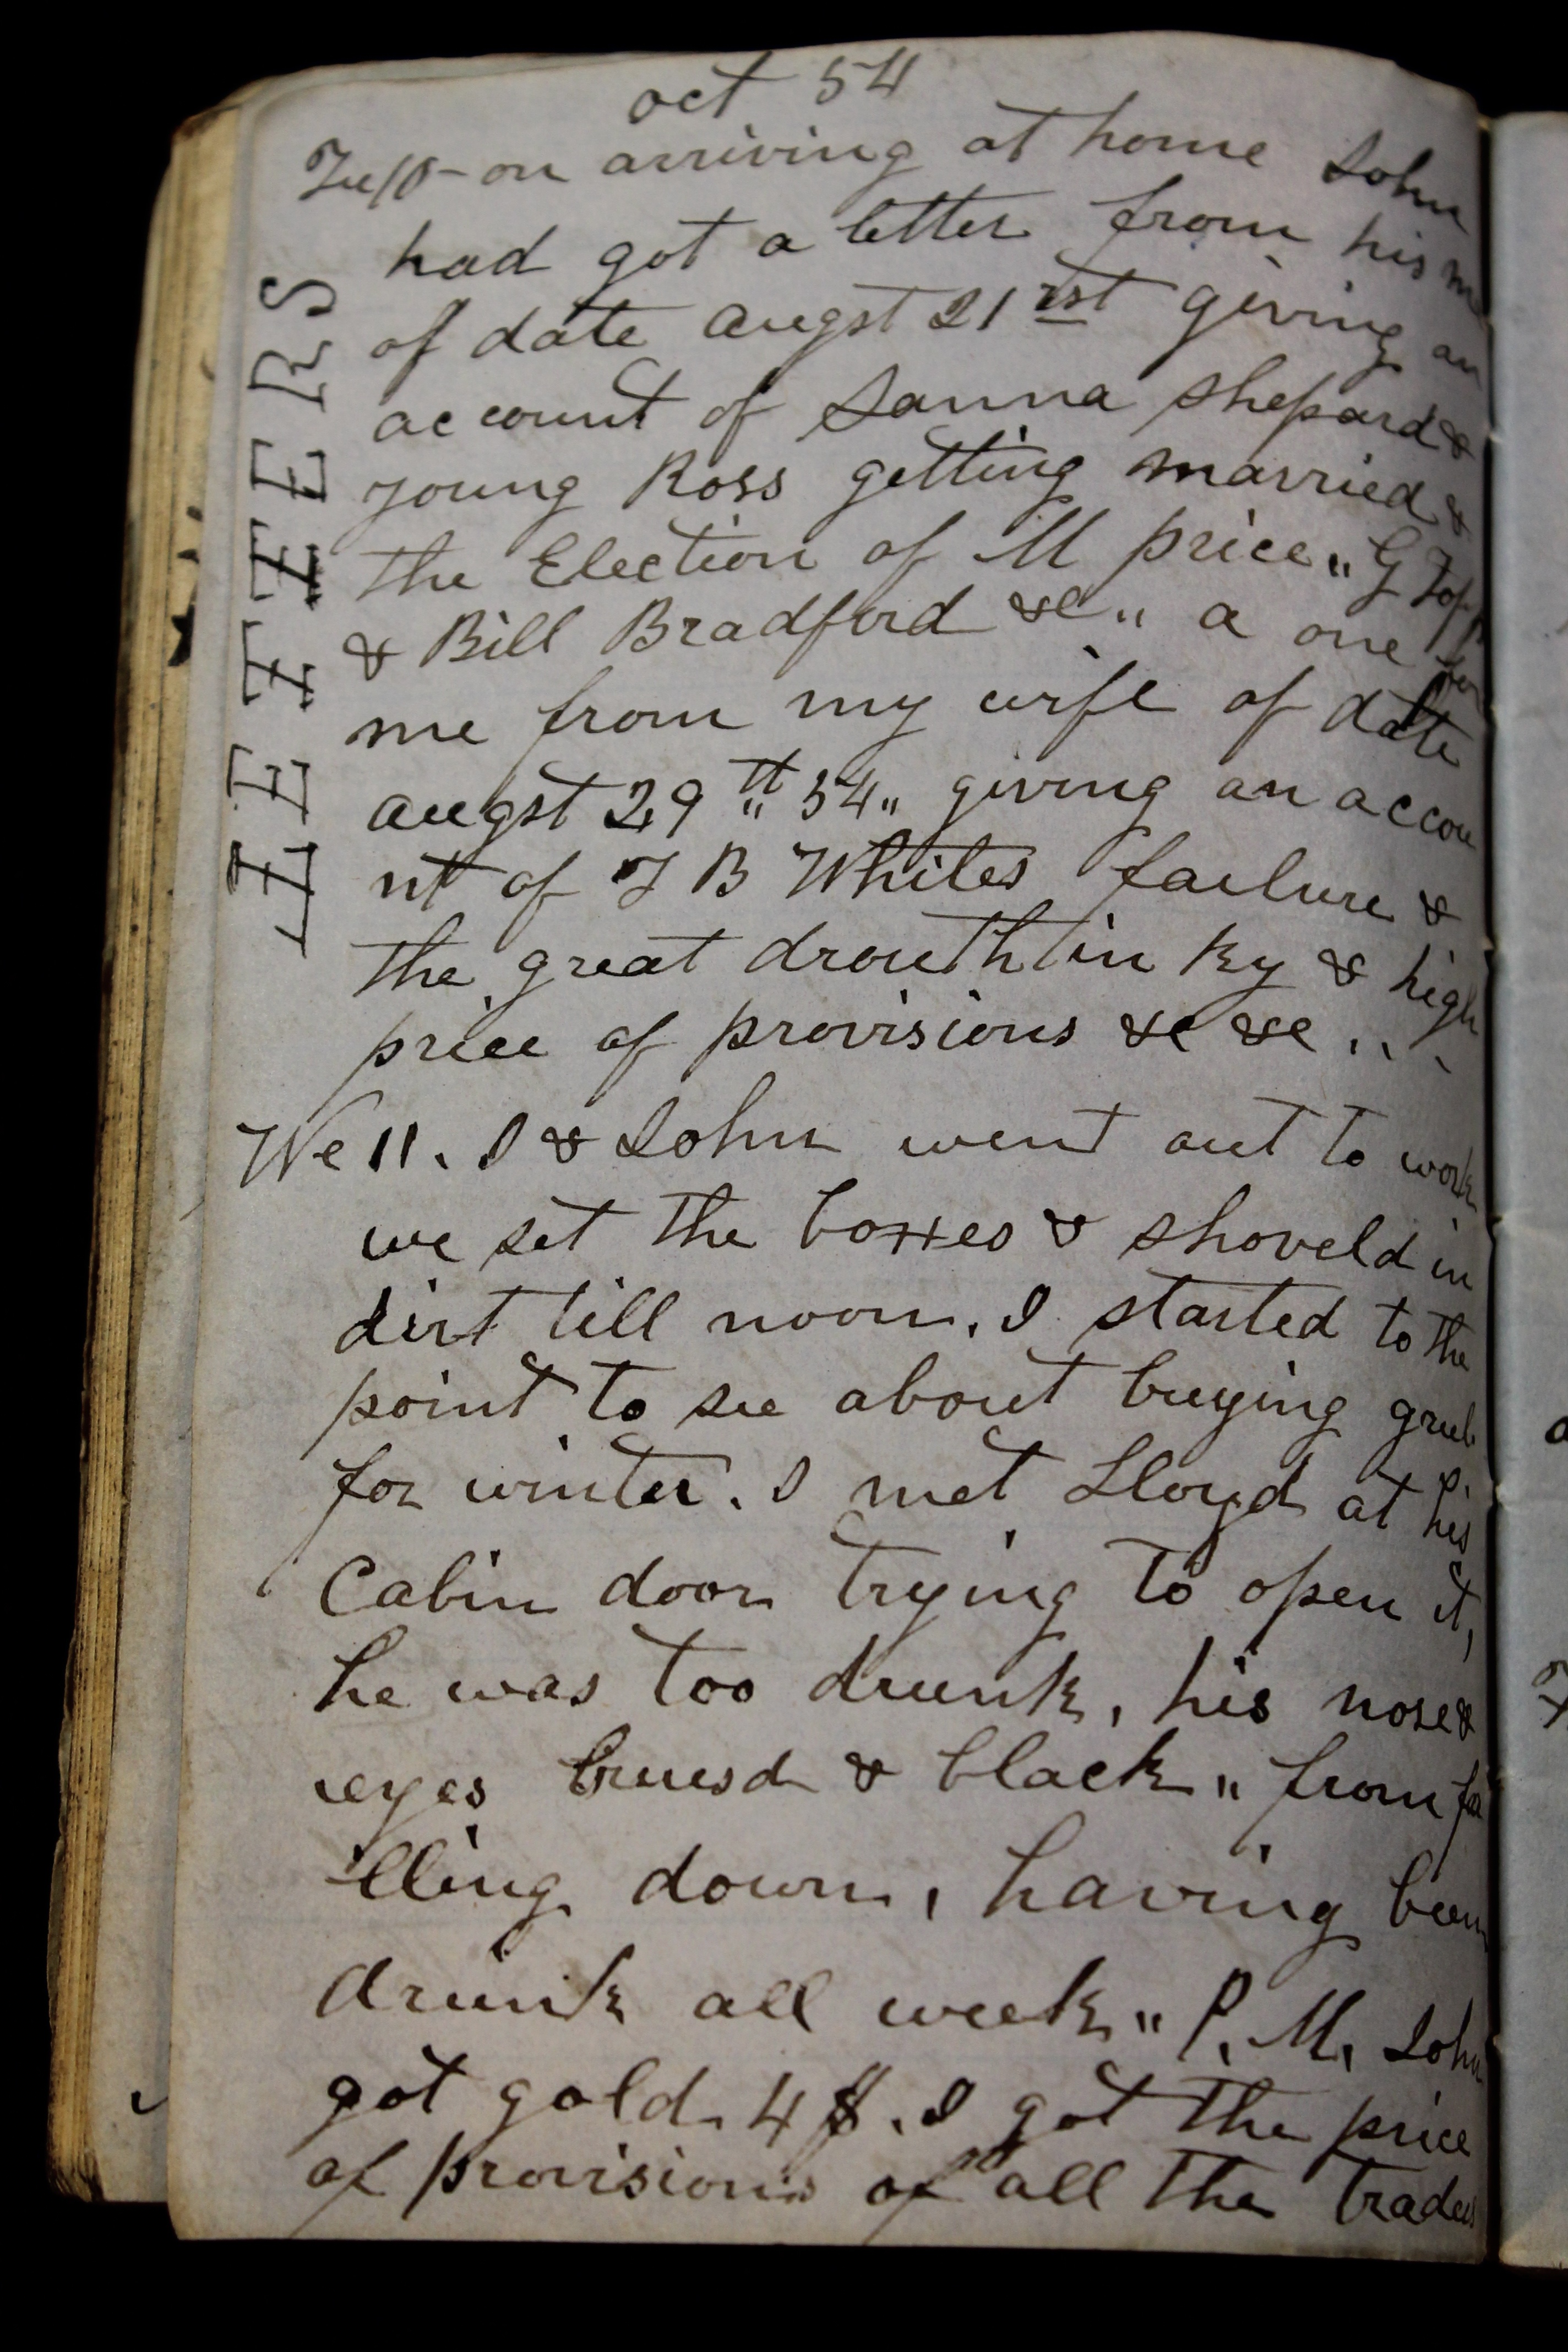 oct 54
Tu 10 - on arriving at home John
had got a letter from his
of date augst 21rst giving an
account of Sanna Shepard &
young Ross getting married &
the Election of M price " G
& Bill Bradford &c " a one for
me from my wife of date
augst 29 tt " 54 " giving an accou
nt of J B Whites failure &
the great drouth in Ky & high
price of provisions &c &c
We 11. I & John went out to work
we set the boxxes & shoveld in
dirt till noon. I started to the
point to see about buying grub
for winter. I met Lloyd at his
Cabin door trying to open it,
he was too drunk, his nose &
eyes bruesd & black " from fa
lling down, having been
drunk all week " P. M. John
got gold 4 $. I got the price
of provisions of all the traders
LETTERS